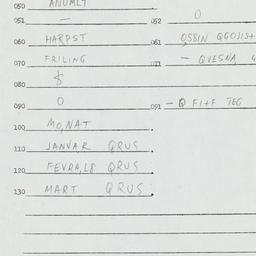 050 ANUMLT
051 — 052 O
060 HARPST 061
070 FRILING 071 - QVESNA
080 $
090 O 091 - Q FI+F TEG
100 MO,NAT
110 JANVAR QRUS
120 FEVRA,L8 QRUS
130 MART QRUS